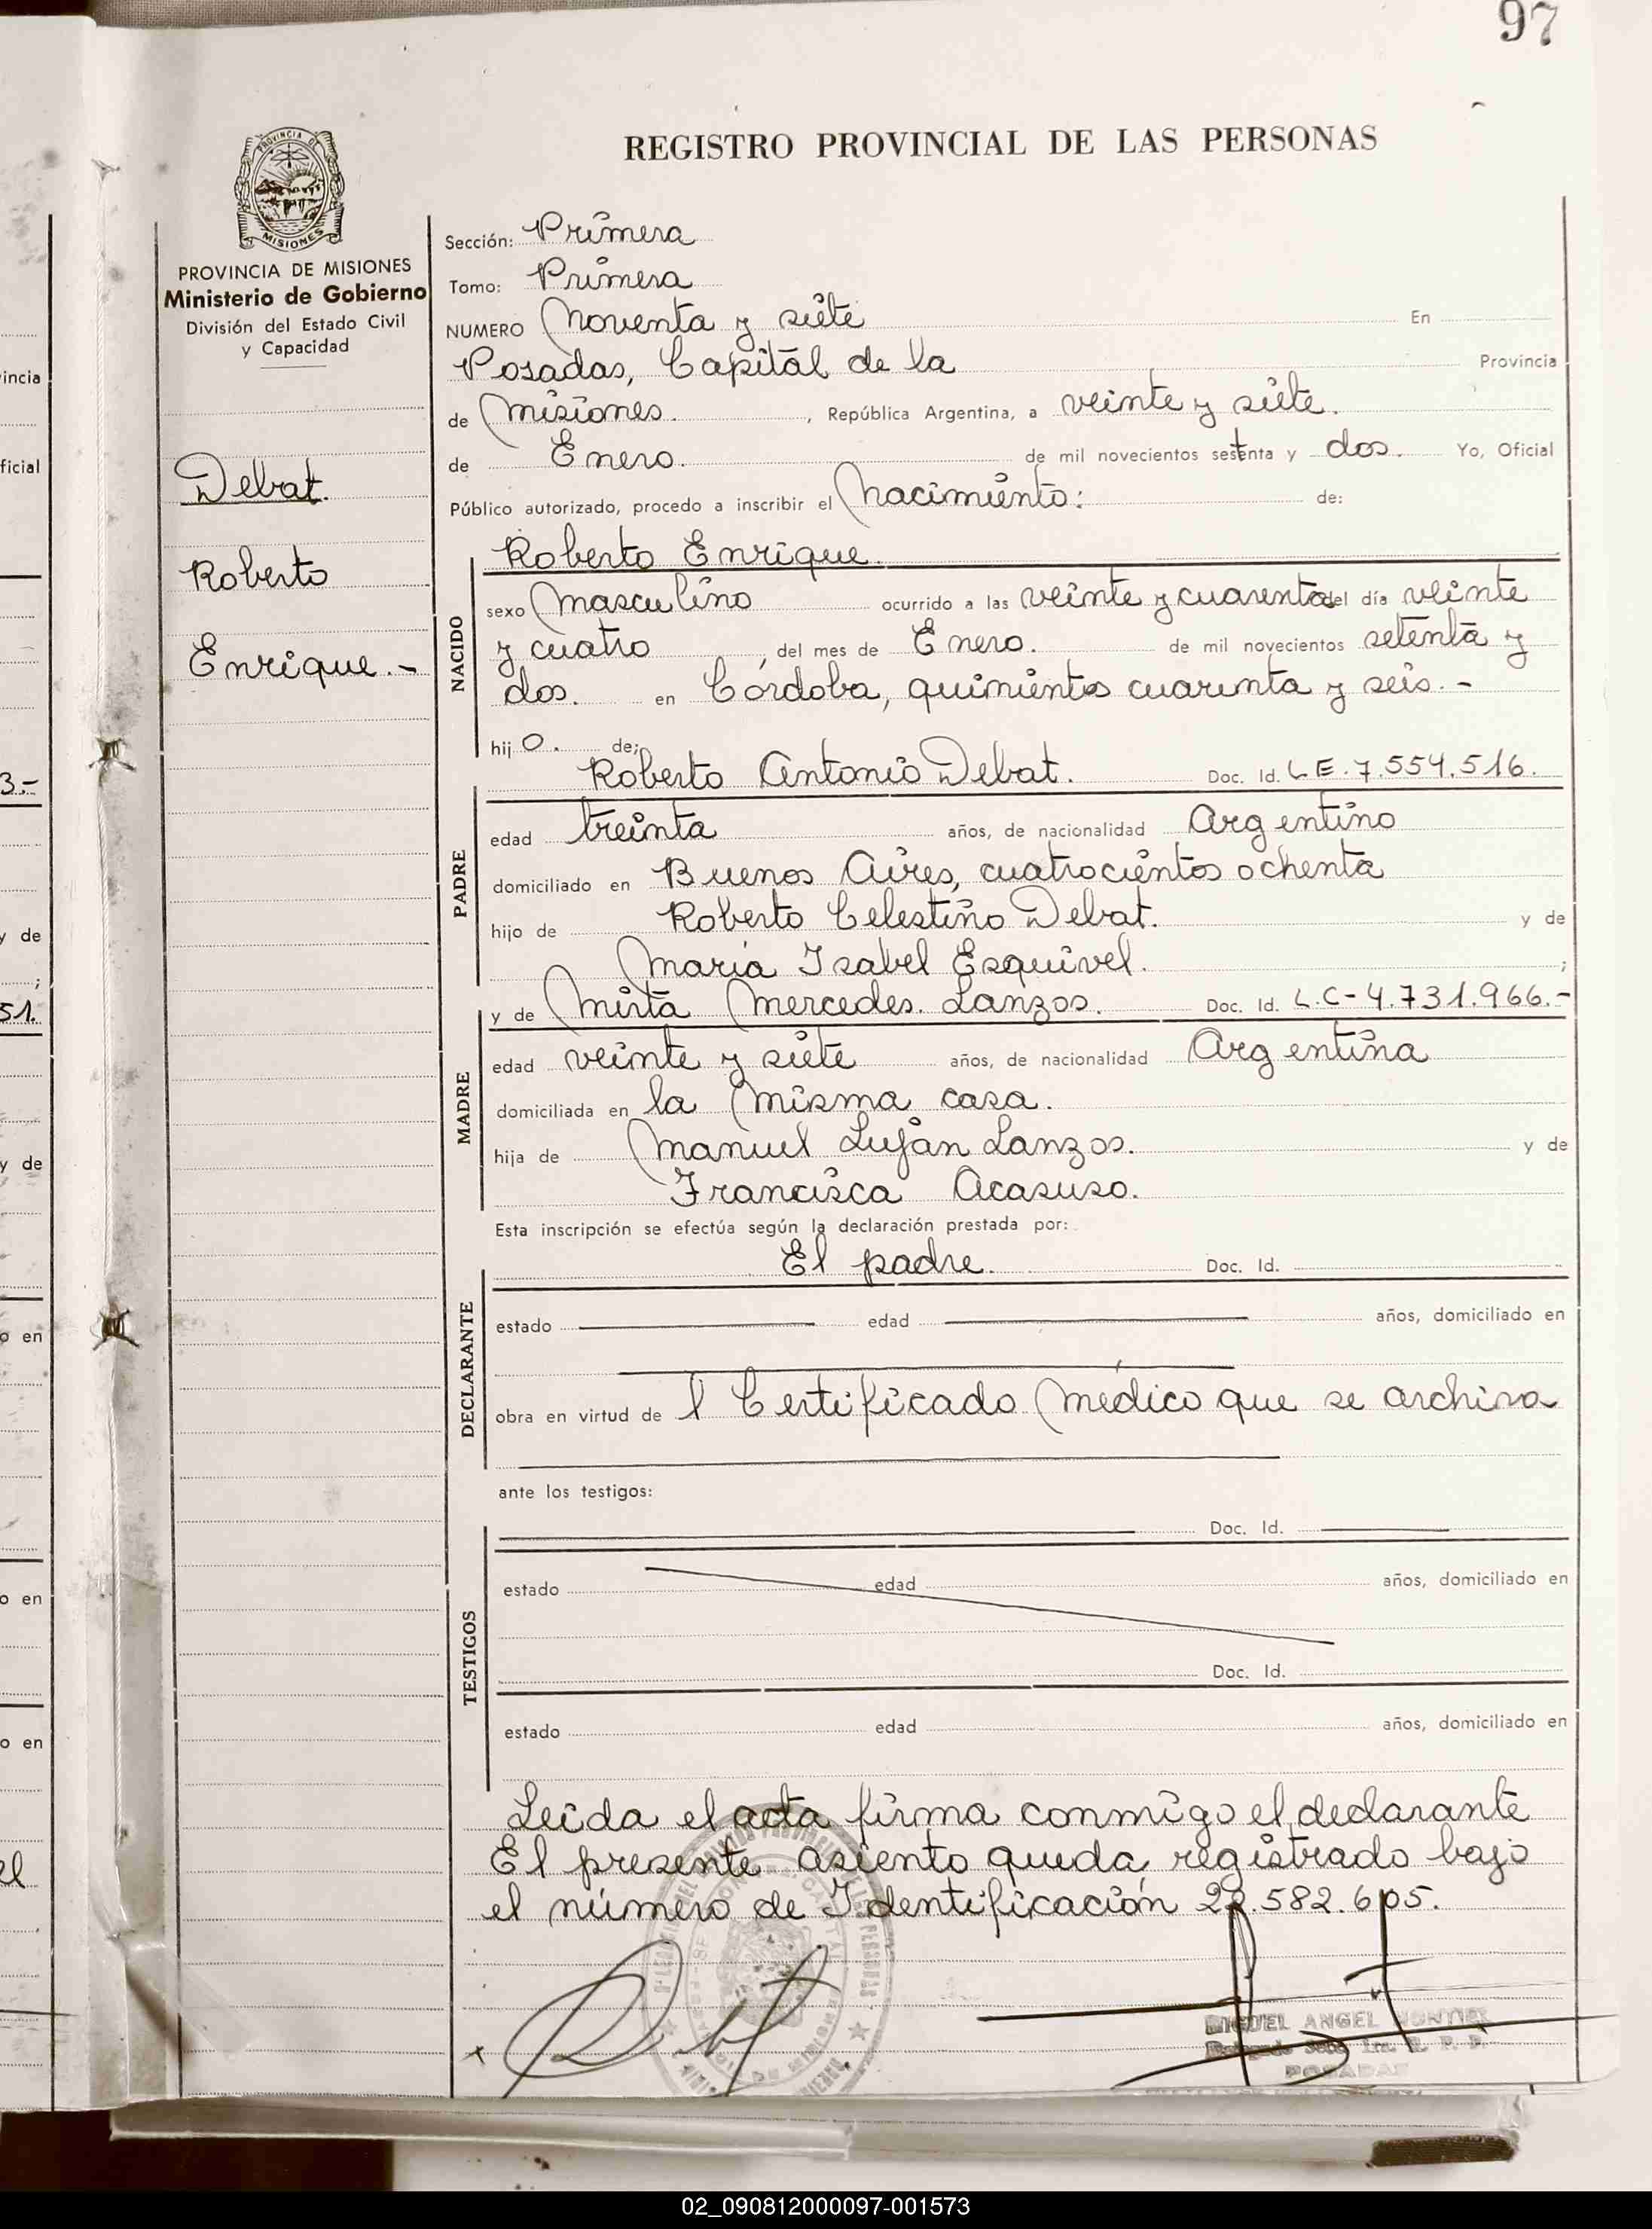 97
REGISTRO PROVINCIAL DE LAS PERSONAS
PROVINCIA DE MISIONES
Ministerio de Gobierno
División del Estado Civil
y Capacidad
Debat.
Roberto
Enrique.-
Sección: Primera
Tomo: Primera
NUMERO Noventa y siete En
Posadas, Capital de la Provincia
de Misiones. , República Argentina, a veinte y siete.
de Enero. de mil novecientos setenta y dos. Yo, Oficial
Público autorizado, procedo a inscribir el Nacimiento: de:
Roberto Enrique.
NACIDO
sexo Masculino ocurrido a las veinte y cuarenta del día veinte
y cuatro , del mes de Enero. de mil novecientos setenta y
dos. en Córdoba, quinientos cuarenta y seis.-
hij o. de;
Roberto Antonio Debat. Doc. Id. L E. 7.554.516.
PADRE
edad treinta años, de nacionalidad Argentino
domiciliado en Buenos Aires, cuatrocientos ochenta
hijo de Roberto Celestino Debat. y de
María Isabel Esquivel. ;
y de Mirta Mercedes. Lanzos. Doc. Id. L.C-4.731.966.-
MADRE
edad veinte y siete años, de nacionalidad Argentina
domiciliada en la misma casa.
hija de Manuel Luján Lanzos. y de
Francisca Acasuso.
Esta inscripción se efectúa según la declaración prestada por:
El padre. Doc. Id.
DECLARANTE
estado edad años, domiciliado en
obra en virtud de l Certificado Médico que se archiva
ante los testigos:
Doc. Id.
TESTIGOS
estado edad años, domiciliado en
Doc. Id.
estado edad años, domiciliado en
Leída el acta firma conmigo el declarante
El presente asiento queda registrado bajo
el número de Identificación 22.582.605.
MIGUEL ANGEL
POSADAS
02_090812000097-001573